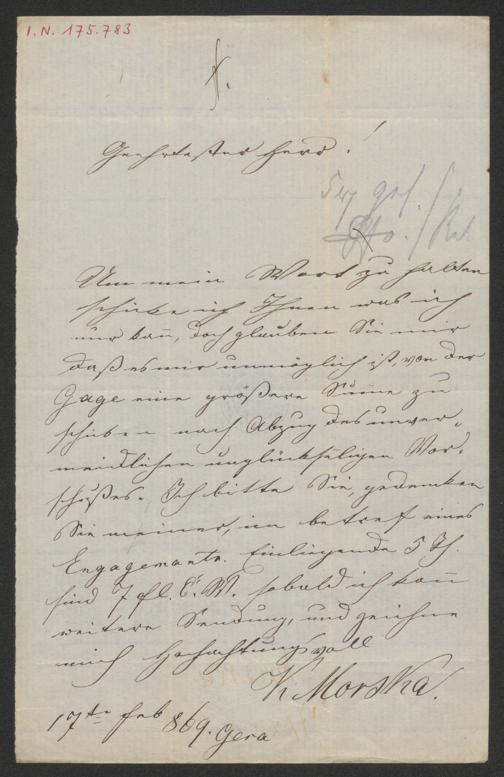 I.N. 175.783
Geehrtester Herr!
Um mein Wort zu halten
schicke ich Ihnen was ich
nur kan̄, doch glauben Sie mir
daß es mir unmöglich ist, von der
Gage eine größere Sum̄e zu
schicken nach Abzug des unver„
meidlichen unglückseligen Vor„
schußes. Ich bitte Sie, gedenken
Sie meiner, in betref eines
Engagements. Einliegende 5 Th.
sind 7 fl. Ö. W. sobald ich kan̄
weitere Sendung, und zeichne
mich Hochachtungsvoll
K Morska.
17te Feb 869. Gera